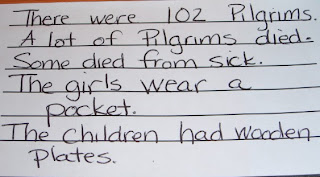 There were 102 Pilgrims.
A lot of Pilgrims died.
Some died from sick.
The girls wear a
pocket.
The children had wooden
plates.